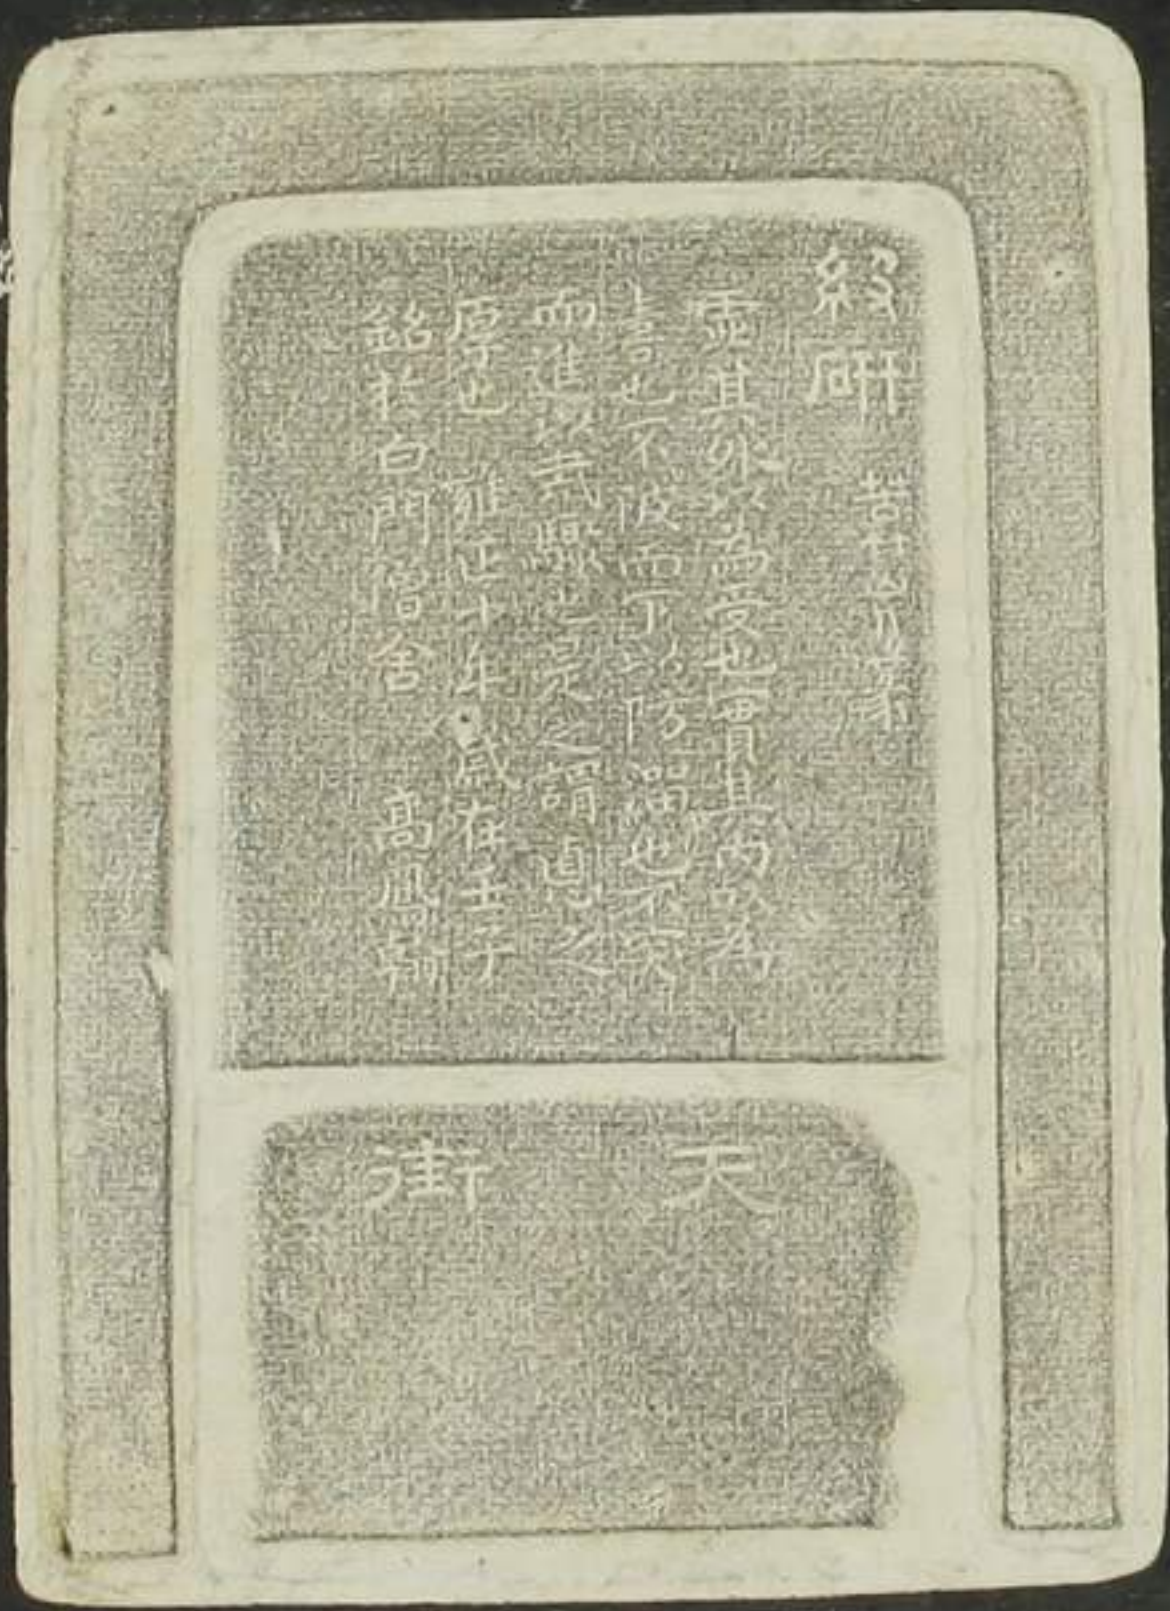 研
虛其外以為受也實其內以為
也不陂而下以防溜也不突
而進以戒驟也是之謂悳之
厚也 雍正十年歲在壬子
銘於白門僧舍 高鳳翰
天街